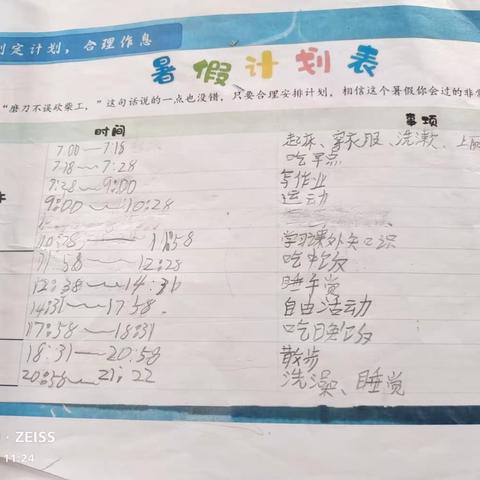 制定计划，合理作息
暑假计划表
“磨刀不误砍柴工，”这句话说的一点也没错，只要合理安排计划，相信这个暑假你会过的非常
时间 事项
7:00—7:18 起床、穿衣服、洗漱、上厕
7:18—7:28 吃早点
7:28—9:00 写作业
9:00—10:28 运动
10:28—11:58 学习课外知识
11:58—12:28 吃中饭
12:38—14:31 睡午觉
14:31—17:58 自由活动
17:58—18:31 吃晚饭
18:31—20:58 散步
20:58—21:22 洗澡、睡觉
ZEISS
11:24